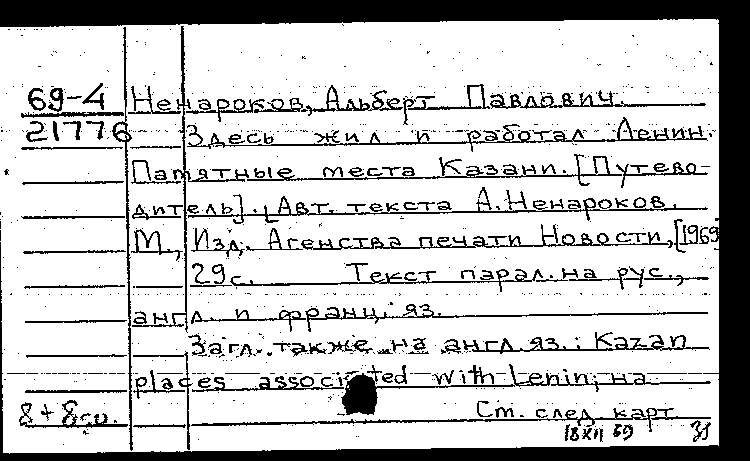 69-4 Ненароков, Альберт Павлович.
21776 Здесь жил и работал Ленин.
Памятные места Казани. [Путево-
дитель]. [Авт. текста А. Ненароков.
М., Изд. Агенства печати Новости, [1969
29 с. Текст парал. на рус.,
англ. и франц. яз.
Загл. также на англ. яз.: Kazan
places associated with Lenin; на
См. след. карт
18 XII 69